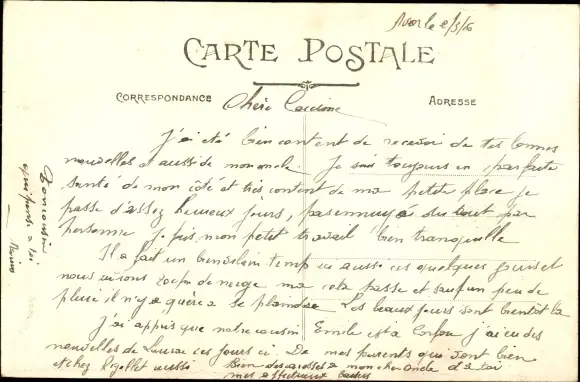 le 2/3/16
CARTE POSTALE
CORRESPONDANCE
ADRESSE
Chère Cousine
J'ai été bien content de recevoir de tes bonnes
nouvelles et aussi de mon oncle. Je suis toujours en parfaite
santé de mon côté et très content de ma petite place je
passe d'assez heureux jours, pas ennuyé du tout par
personne je fais mon petit travail bien tranquille
Il a fait un bien vilain temp ici aussi ces quelques jours et
nous avions de neige ma cela passe et sauf un peu de
pluie il n'y a guère a se plaindre Les beaux jours sont bientôt la
j'ai appris que notre cousin Emile est a Corfou j'ai eu des
nouvelles de ces jours ci. De mes parents qui vont bien
et chez Rigollet aussi
Bien des choses a mon cher Oncle a toi
mes affectueux baisers
Ton cousin
qui pense a toi